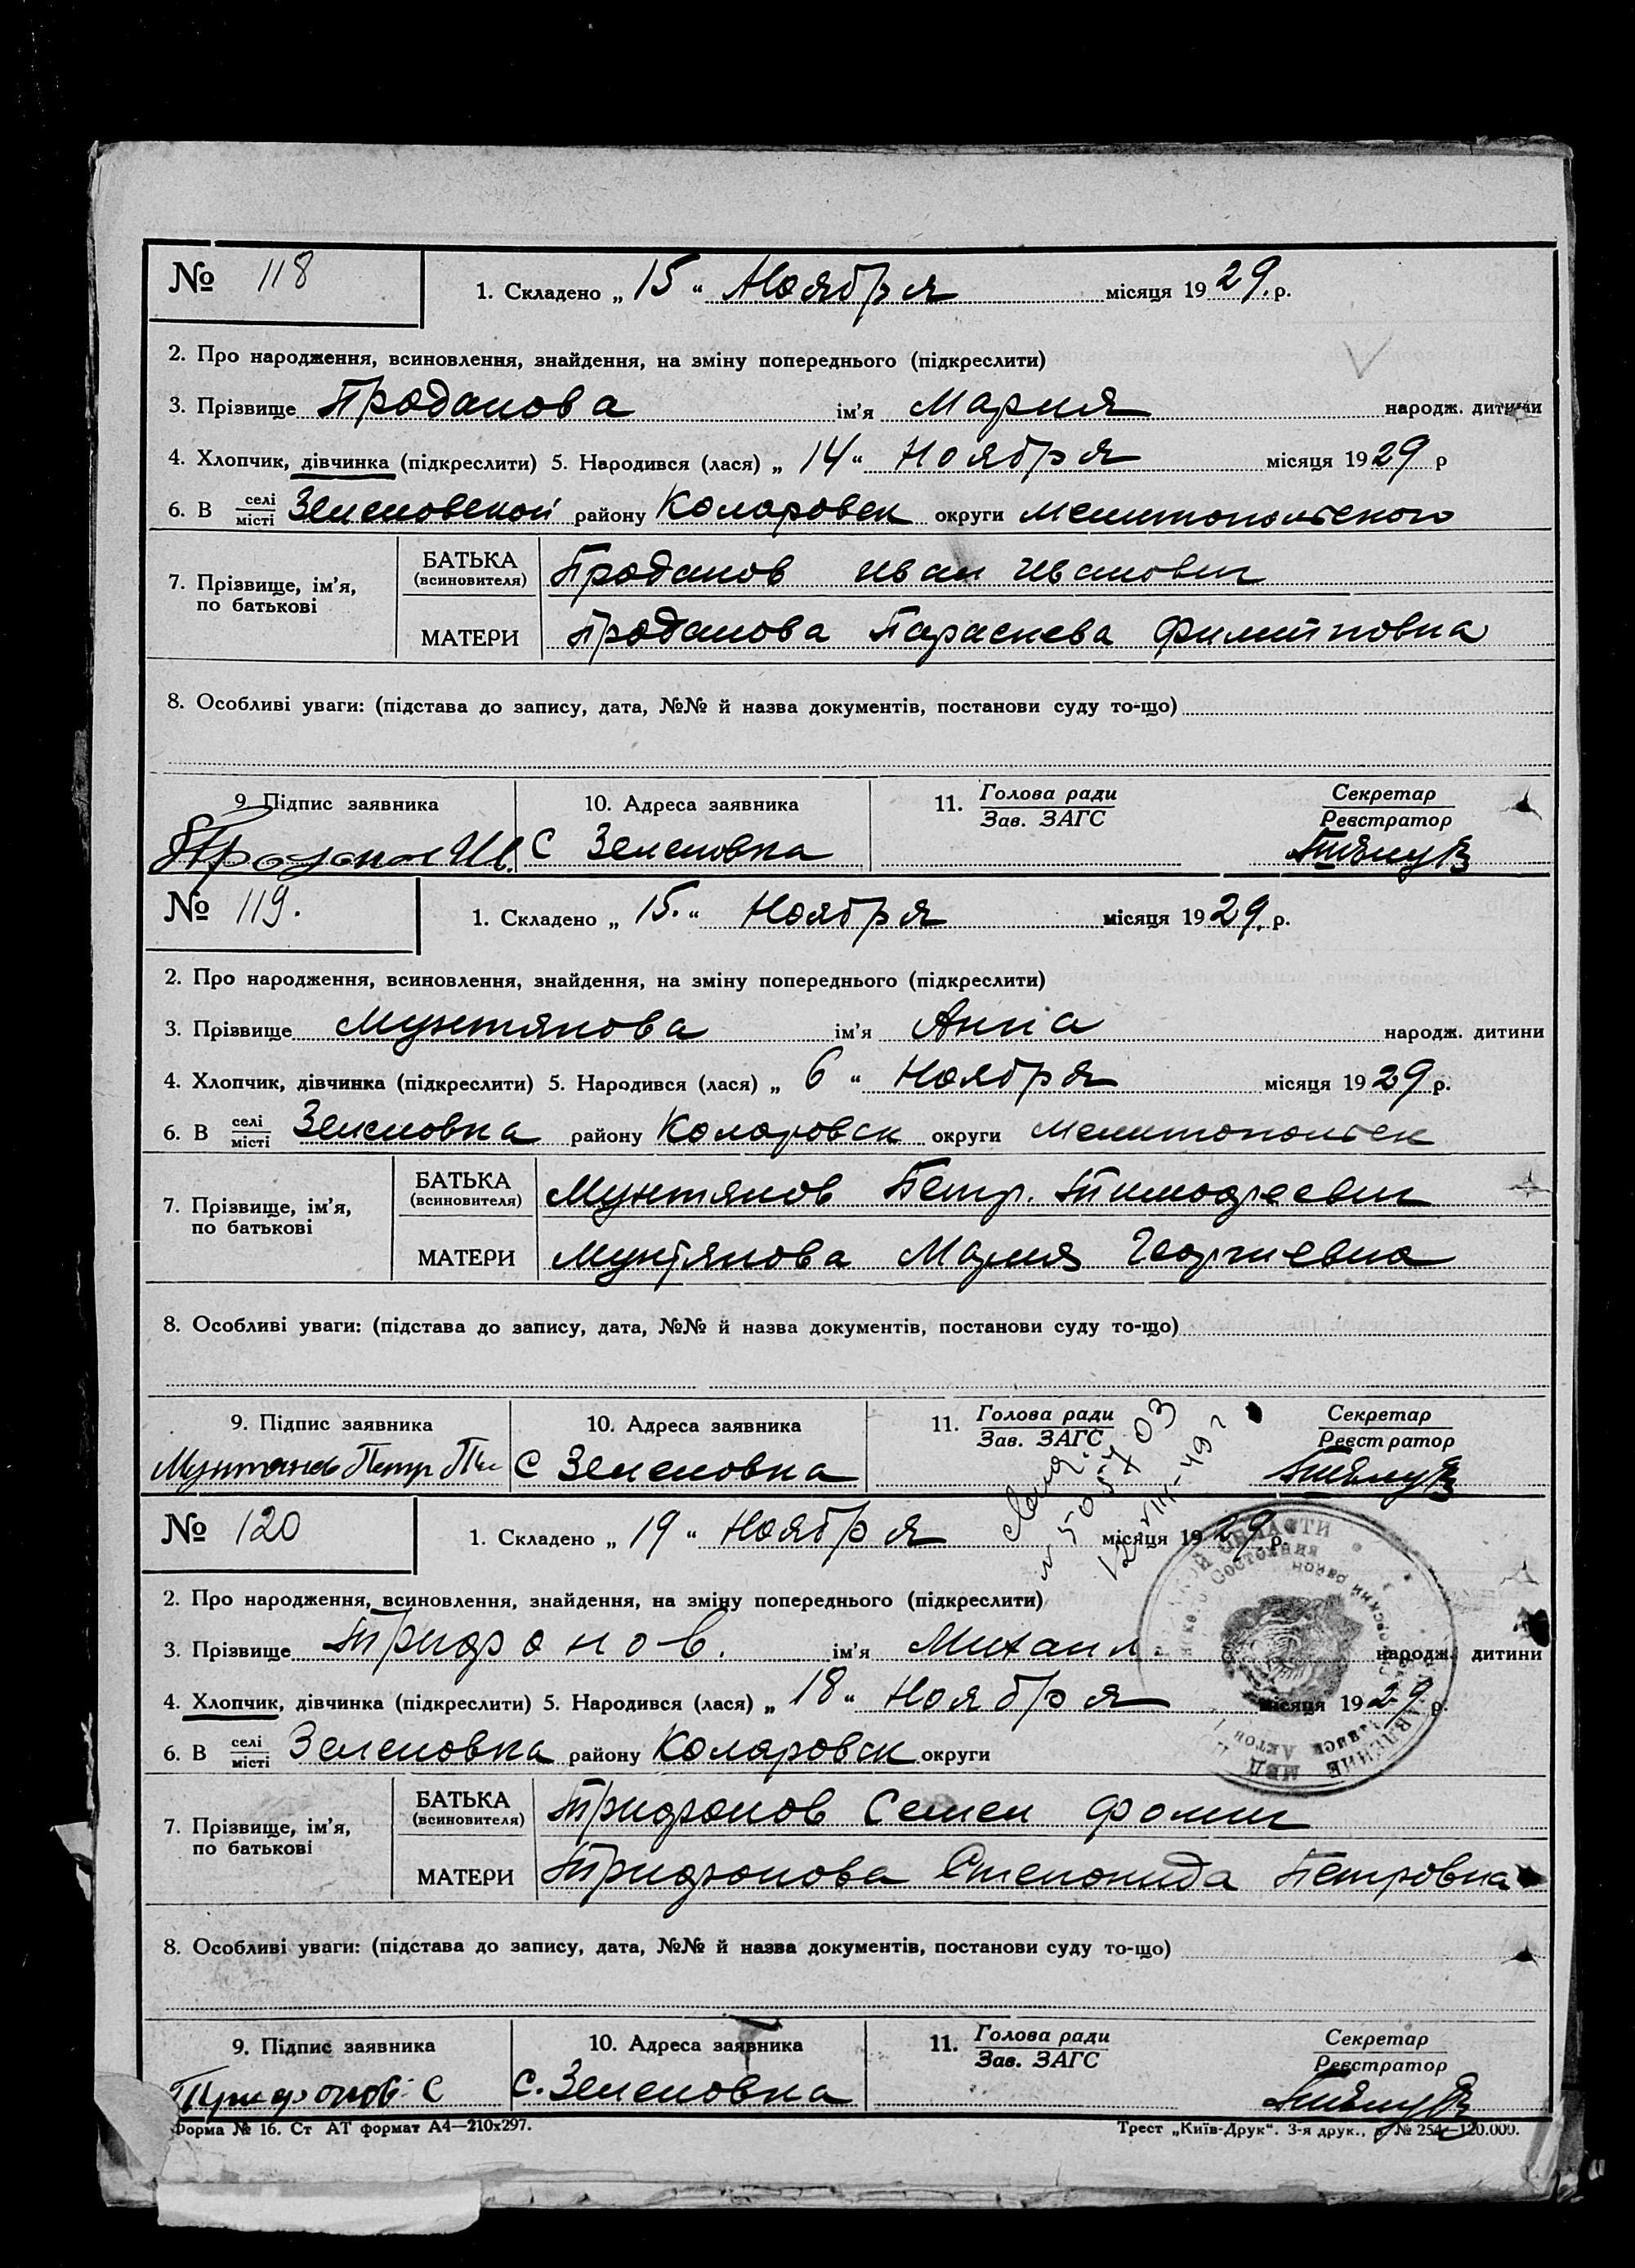 № 118 1. Складено „ 15 “ Ноября місяця 1929. р.
2. Про народження, всиновлення, знайдення, на зміну попереднього (підкреслити)
3. Прізвище Проданова ім’я Мария народж. дитини
4. Хлопчик, дівчинка (підкреслити) 5. Народився (лася) „ 14 “ Ноября місяця 1929 р
6. В селі/місті Зеленовской району Коларовск округи Мелитопольского
7. Прізвище, ім’я, по батькові
БАТЬКА (всиновителя) Проданов Иван Иванович
МАТЕРИ Проданова Параскева Филипповна
8. Особливі уваги: (підстава до запису, дата, №№ й назва документів, постанови суду то-що)
9. Підпис заявника 10. Адреса заявника 11. Голова ради/Зав. ЗАГС Секретар/Реєстратор
Проданов И. С Зеленовка
№ 119. 1. Складено „ 15. “ Ноября місяця 1929. р.
2. Про народження, всиновлення, знайдення, на зміну попереднього (підкреслити)
3. Прізвище Мунтянова ім’я Анна народж. дитини
4. Хлопчик, дівчинка (підкреслити) 5. Народився (лася) „ 6 “ Ноября місяця 1929 р.
6. В селі/місті Зеленовка району Коларовск округи Мелитопольск
7. Прізвище, ім’я, по батькові
БАТЬКА (всиновителя) Мунтянов Петр. Тимофеевич
МАТЕРИ Мунтянова Мария Георгиевна
8. Особливі уваги: (підстава до запису, дата, №№ й назва документів, постанови суду то-що)
9. Підпис заявника 10. Адреса заявника 11. Голова ради/Зав. ЗАГС Секретар/Реєстратор
Мунтянов Петр С Зеленовка
№ 120 1. Складено „ 19 “ Ноября місяця 1929 р.
2. Про народження, всиновлення, знайдення, на зміну попереднього (підкреслити)
3. Прізвище Трифонов. ім’я Михаил народж. дитини
4. Хлопчик, дівчинка (підкреслити) 5. Народився (лася) „ 18 “ Ноября місяця 1929 р.
6. В селі/місті Зеленовка району Коларовск округи
7. Прізвище, ім’я, по батькові
БАТЬКА (всиновителя) Трифонов Семен Фомич
МАТЕРИ Трифонова Степонида Петровна
8. Особливі уваги: (підстава до запису, дата, №№ й назва документів, постанови суду то-що)
9. Підпис заявника 10. Адреса заявника 11. Голова ради/Зав. ЗАГС Секретар/Реєстратор
Трифонов С с. Зеленовка
Форма № 16. Ст АТ формат А4—210х297. Трест „Київ-Друк“. 3-я друк., з. № 254—120.000.